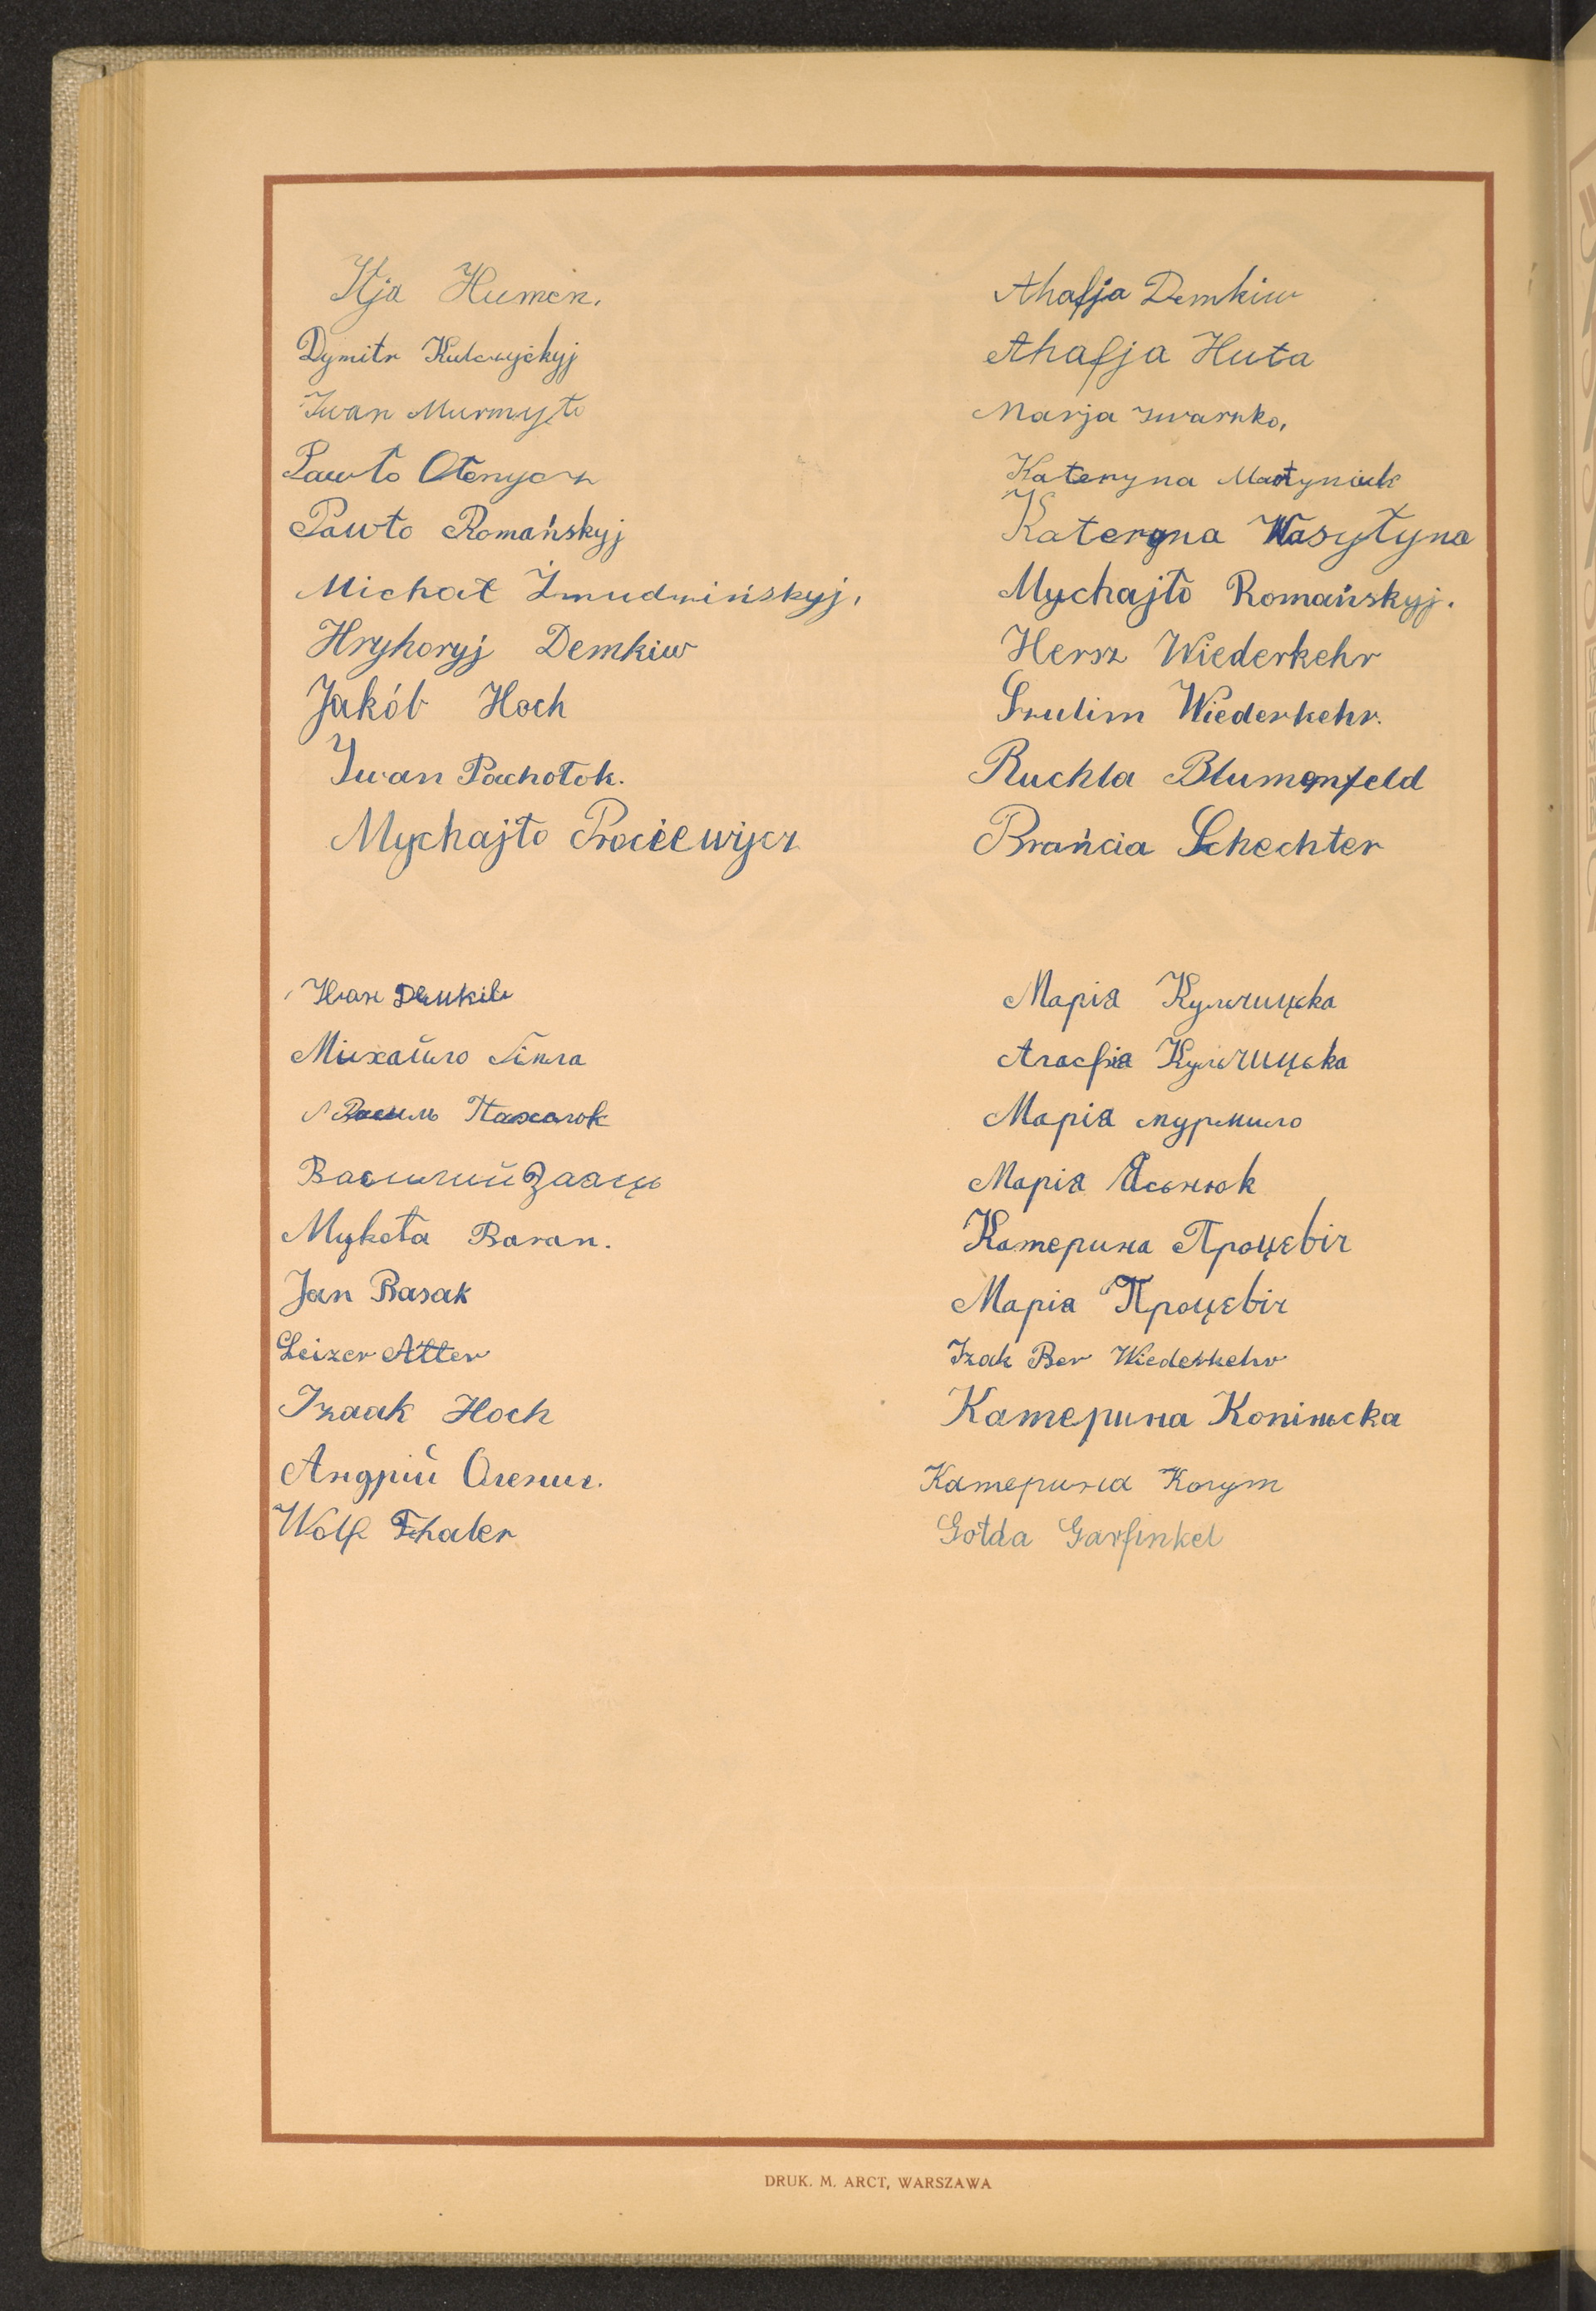 Ilja Humen.
Dymitr Kulczyćkyj
Iwan Murmyło
Pawło Ołenycz
Pawło Romańskyj
Michał Żmudzińskyj,
Hryhoryj Demkiw
Jakób Hoch
Iwan Pachołok.
Mychajło Prociewycz
Ahafja Demkiw
Ahafja Huta
Marja Iwaszko,
Kateryna Martyniuk
Kateryna Wasyłyna
Mychajło Romańskyj.
Hersz Wiederkehr
Srulim Wiederkehr.
Ruchla Blumenfeld
Brańcia Schechter
Иван Демкiв
Михайло
Василь Пахолок
Василий Зааць
Mykoła Baran.
Jan Basak
Leizer Atter
Izaak Hoch
Андрій Оленич.
Wolf Thaler
Марія Кульчицька
Агафія Кульчицька
Марія мурмило
Марія Ясьнюк
Катерина Процевіч
Марія Процевіч
Izak Ber Wiederkehr
Катерина Копіньска
Катерина Когут
Gołda Garfinkel
DRUK. M. ARCT, WARSZAWA